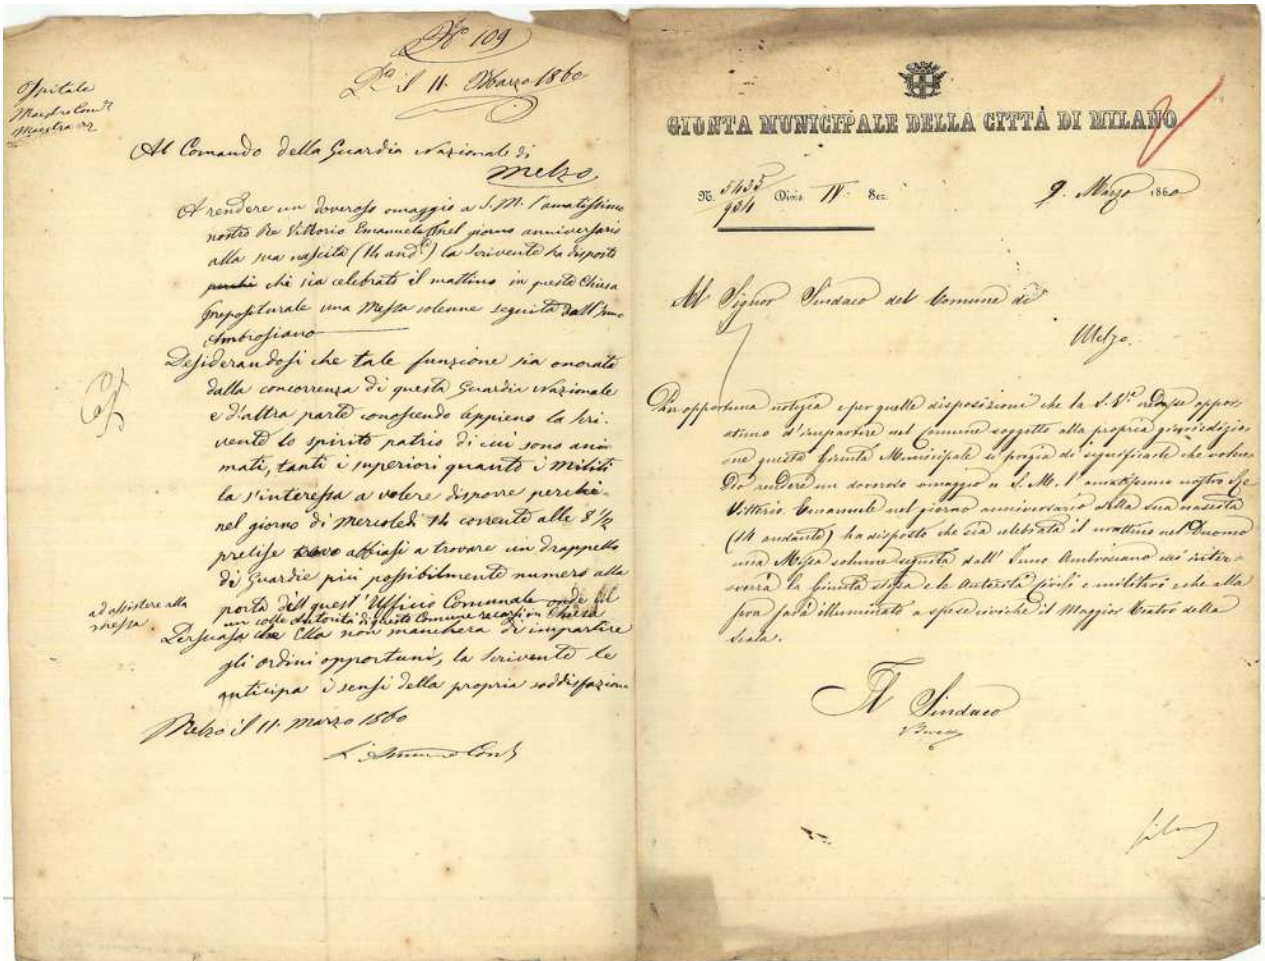 N° 109
D° il 11. Marzo 1860
Ospitale
Maestro Com.
Maestra
Al Comando della Guardia Nazionale di
Melzo
A rendere un doveroso omaggio a S. M. l'amatissimo
nostro Re Vittorio Emanuele II nel giorno anniversario
alla sua nascita (14 and.e) la scrivente ha disposto
perchè che sia celebrata il mattino in questa Chiesa
Prepositurale una Messa solenne seguita dall'Inno
Ambrosiano
Desiderandosi che tale funzione sia onorata
dalla concorrenza di questa Guardia Nazionale
e d'altra parte conoscendo appieno la scri-
vente lo spirito patrio di cui sono ani-
mati, tanti i superiori quanto i militi
la s'interessa a volere disporre perchè
nel giorno di Mercoledi 14 corrente alle 8 1/2
precise abbiasi a trovare un drappello
di Guardie più possibilmente numero alla
porta dell quest'Ufficio Comunale onde
un colle autorità di questo Comune recarsi in Chiesa
ad assistere alla
messa
Persuasa che Ella non mancherà di impartire
gli ordini opportuni, la scrivente le
anticipa i sensi della propria soddisfazione
Melzo il 11. Marzo 1860
GIUNTA MUNICIPALE DELLA CITTÀ DI MILANO
N. 5435/934 Divis. IV Sez.
9. Marzo 1860
Al Signor Sindaco del Comune di
Melzo.
Per opportuna notizia e per quelle disposizioni che la S. V.a credesse oppor-
tuno d'impartire nel Comune soggetto alla propria giurisdizio-
ne questa Giunta Municipale si pregia di significarle che volen-
do rendere un doveroso omaggio a S. M. l'amatissimo nostro Re
Vittorio Emanuele nel giorno anniversario della sua nascita
(14 andante) ha disposto che sia celebrata il mattino nel Duomo
una Messa solenne seguita dall'Inno Ambrosiano cui inter-
verrà la Giunta stessa e le Autorità civili e militari e che alla
sera sarà illuminato a spese civiche il Maggior Teatro della
Scala.
Il Sindaco